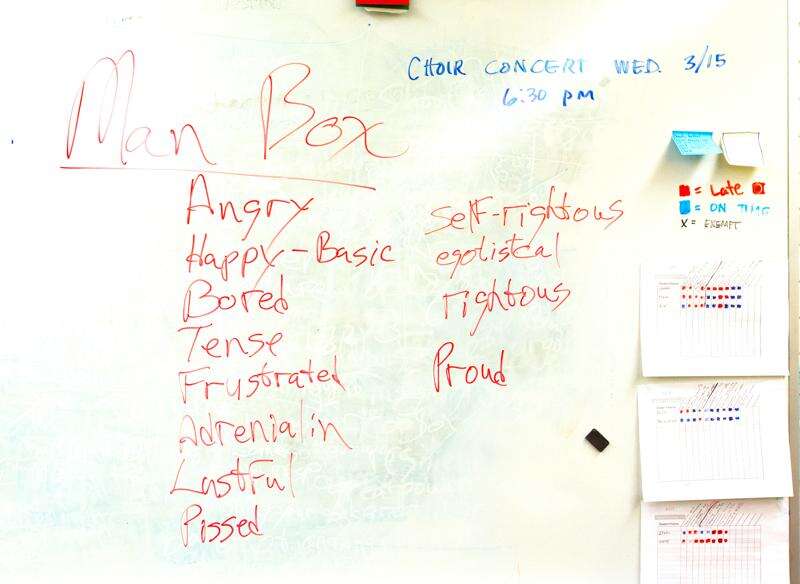 CHOIR CONCERT WED. 3/15
6:30 PM
Man Box
Angry
Happy-Basic
Bored
Tense
Frustrated
Adrenialin
Lustful
Pissed
self-rightous
egotistcal
rightous
Proud
= Late
= ON TIME
X = EXEMPT